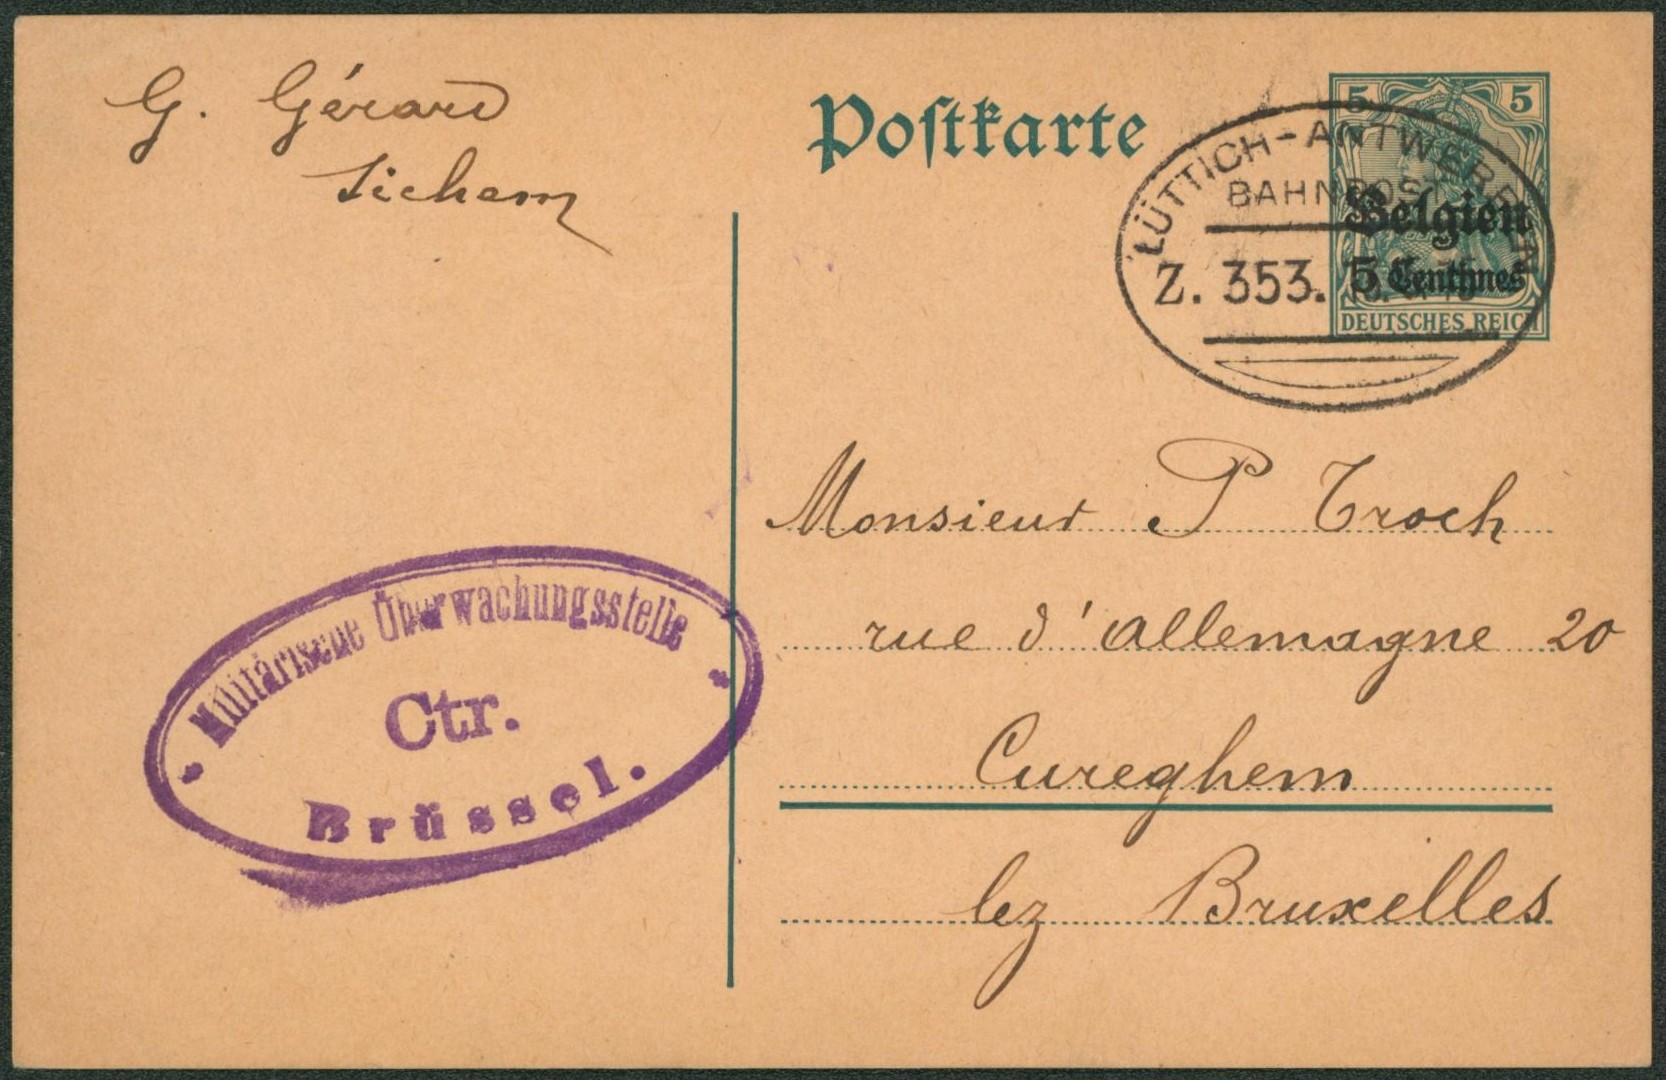 G. Gérard
Sichem
Postkarte
5 5
LÜTTICH-ANTWERPEN
BAHNPOST
Z. 353.
Belgien
5 Centimes
DEUTSCHES REICH
Monsieur P Troch
rue d'allemagne 20
Cureghem
lez Bruxelles
Militärische Überwachungsstelle
Ctr.
Brüssel.